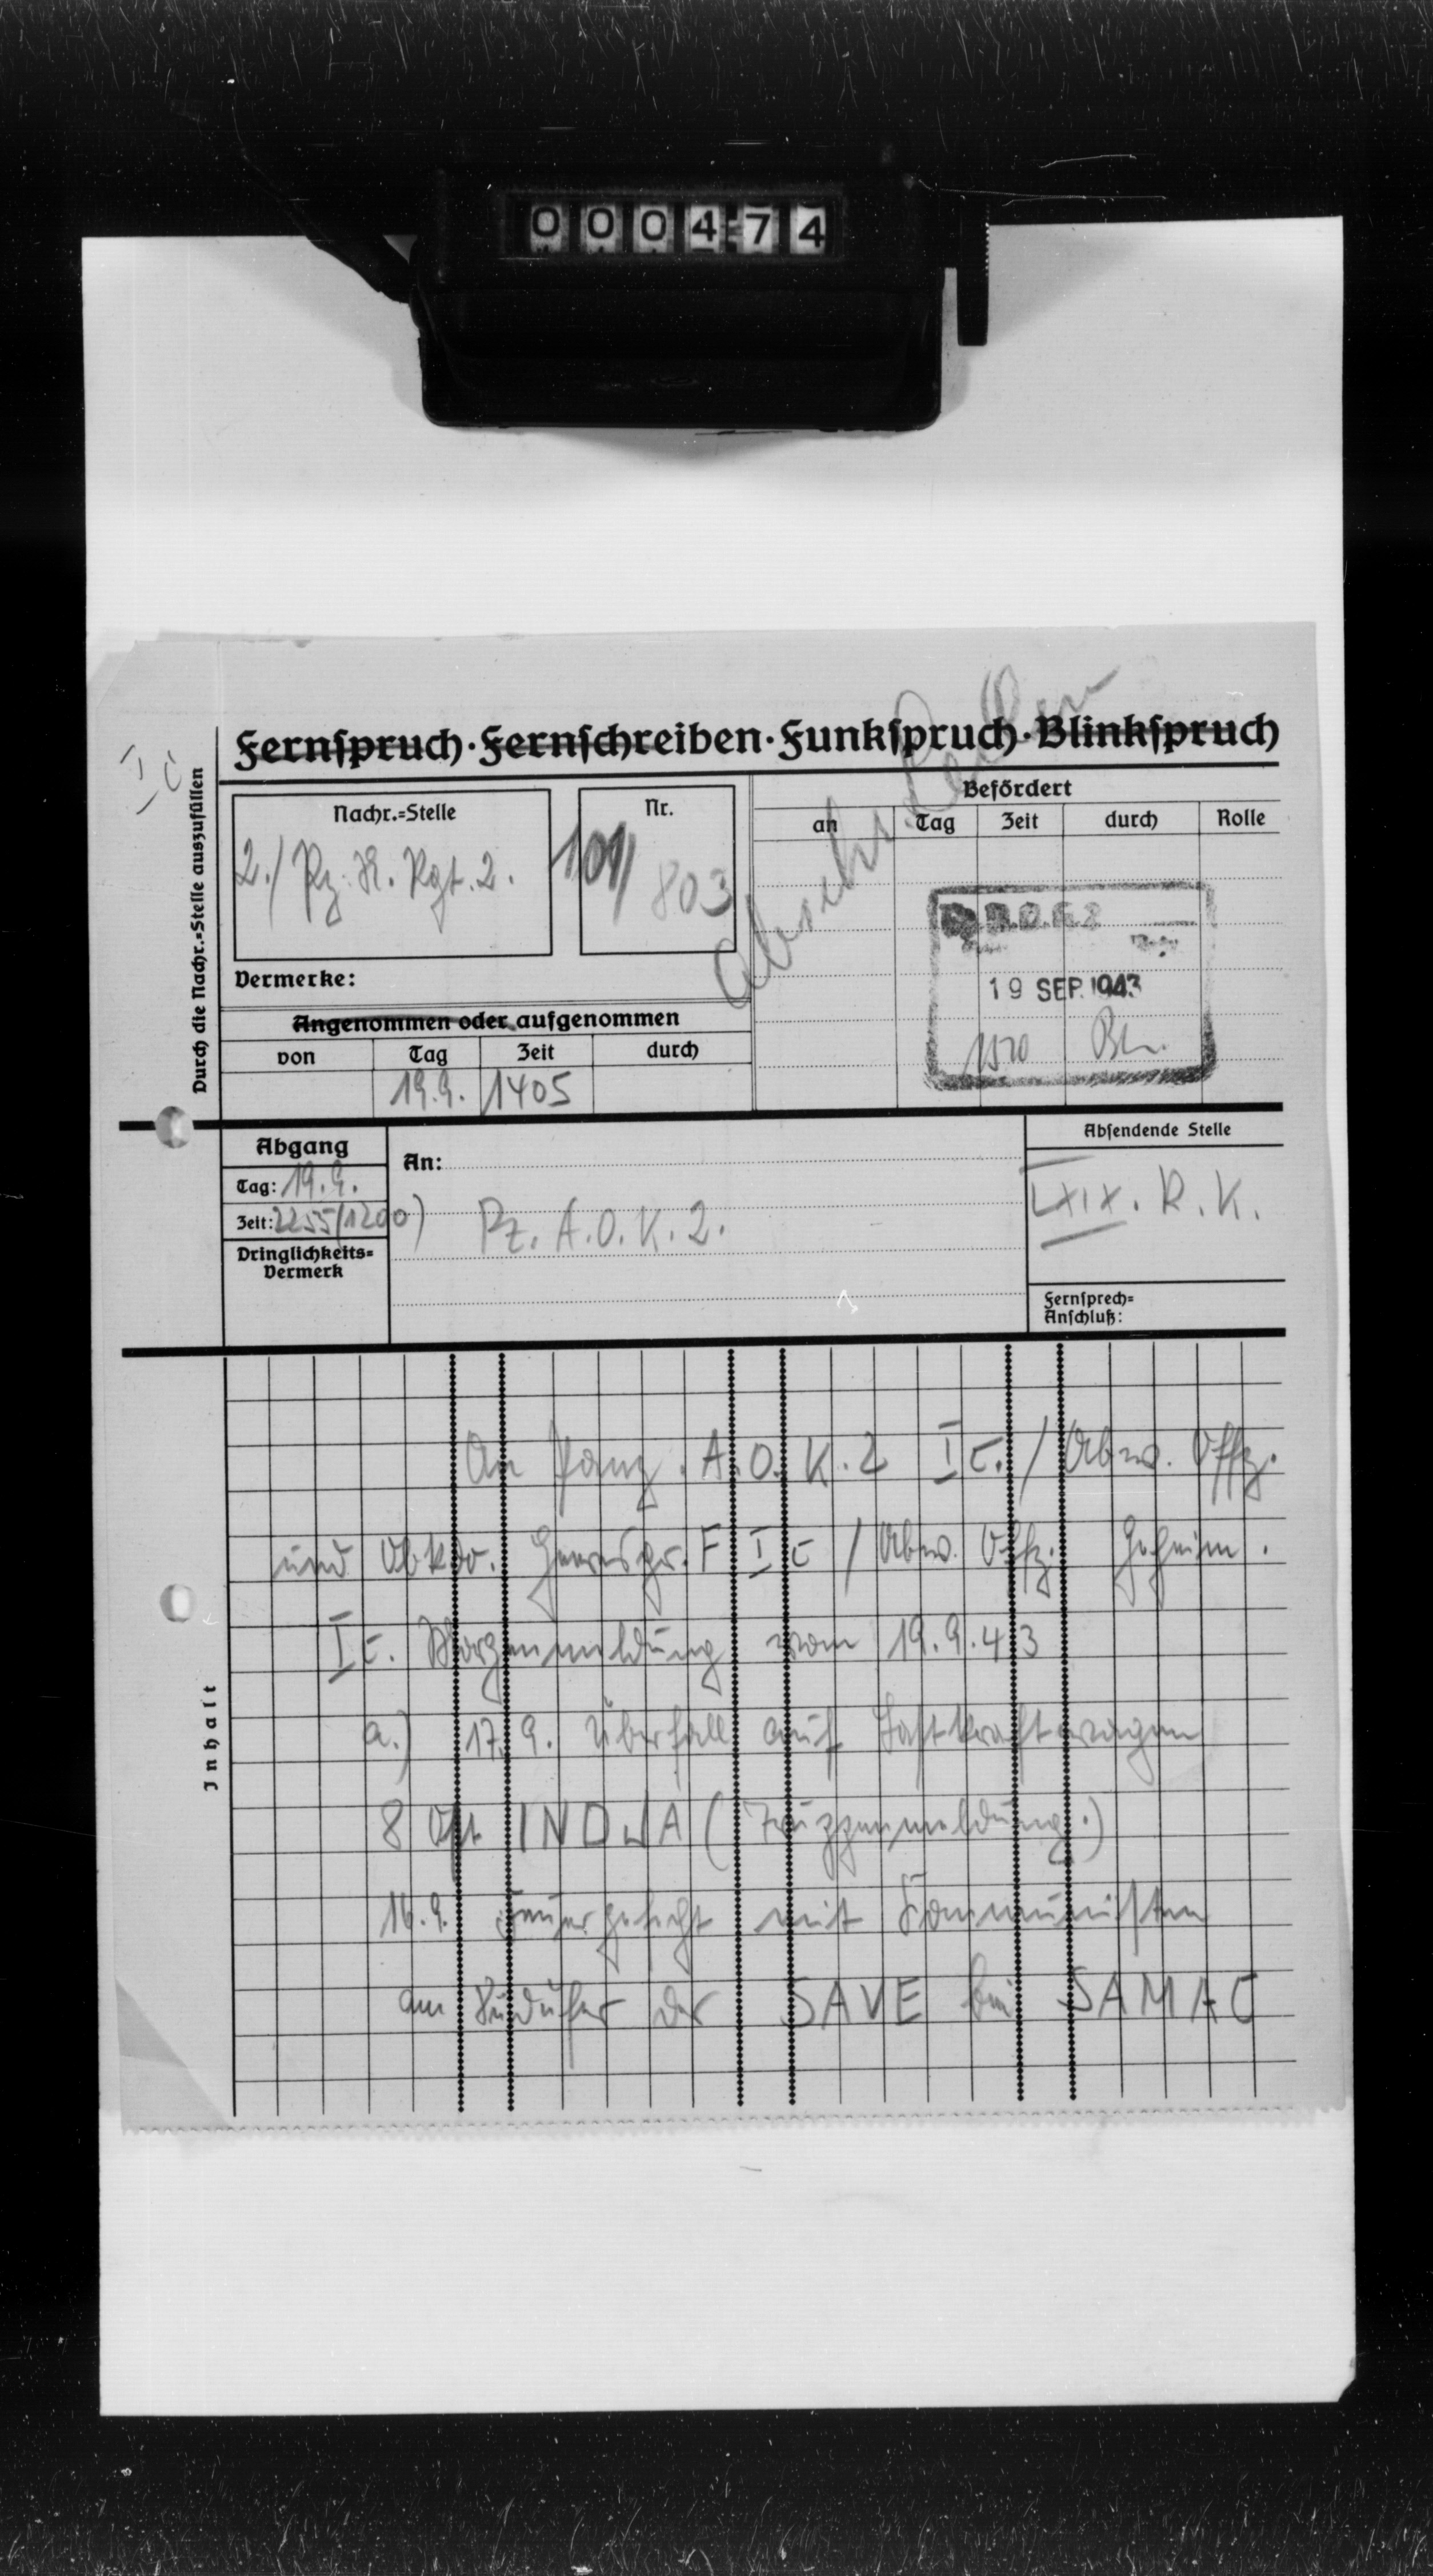 000474
Ic
Fernspruch · Fernschreiben · Funkspruch · Blinkspruch
Durch die Nachr.=Stelle auszufüllen
Nachr.=Stelle
2./ Pz. N. Rgt. 2.
Nr.
101/ 803
Vermerke:
Angenommen oder aufgenommen
von Tag Zeit durch
19.9. 1405
Befördert
an Tag Zeit durch Rolle
19 SEP. 1943
Abgang
Tag: 19.9.
Zeit: 2255 (1200)
Dringlichkeits=
Vermerk
An:
Pz. A.O.K. 2.
Absendende Stelle
LXIX. R. K.
Fernsprech=
Anschluß:
Inhalt
An Panz. A.O.K. 2 Ic. / Abw. Offz.
und Obkdo. Heeresgr. F Ic / Abw. Offz. Geheim.
Ic. Morgenmeldung vom 19.9.43
a.) 17.9. Überfall auf Lastkraftwagen
8 INDJJA (Truppenmeldung.)
16.9. Feuergefecht mit Kommunisten
am Südufer der SAVE bei SAMAC